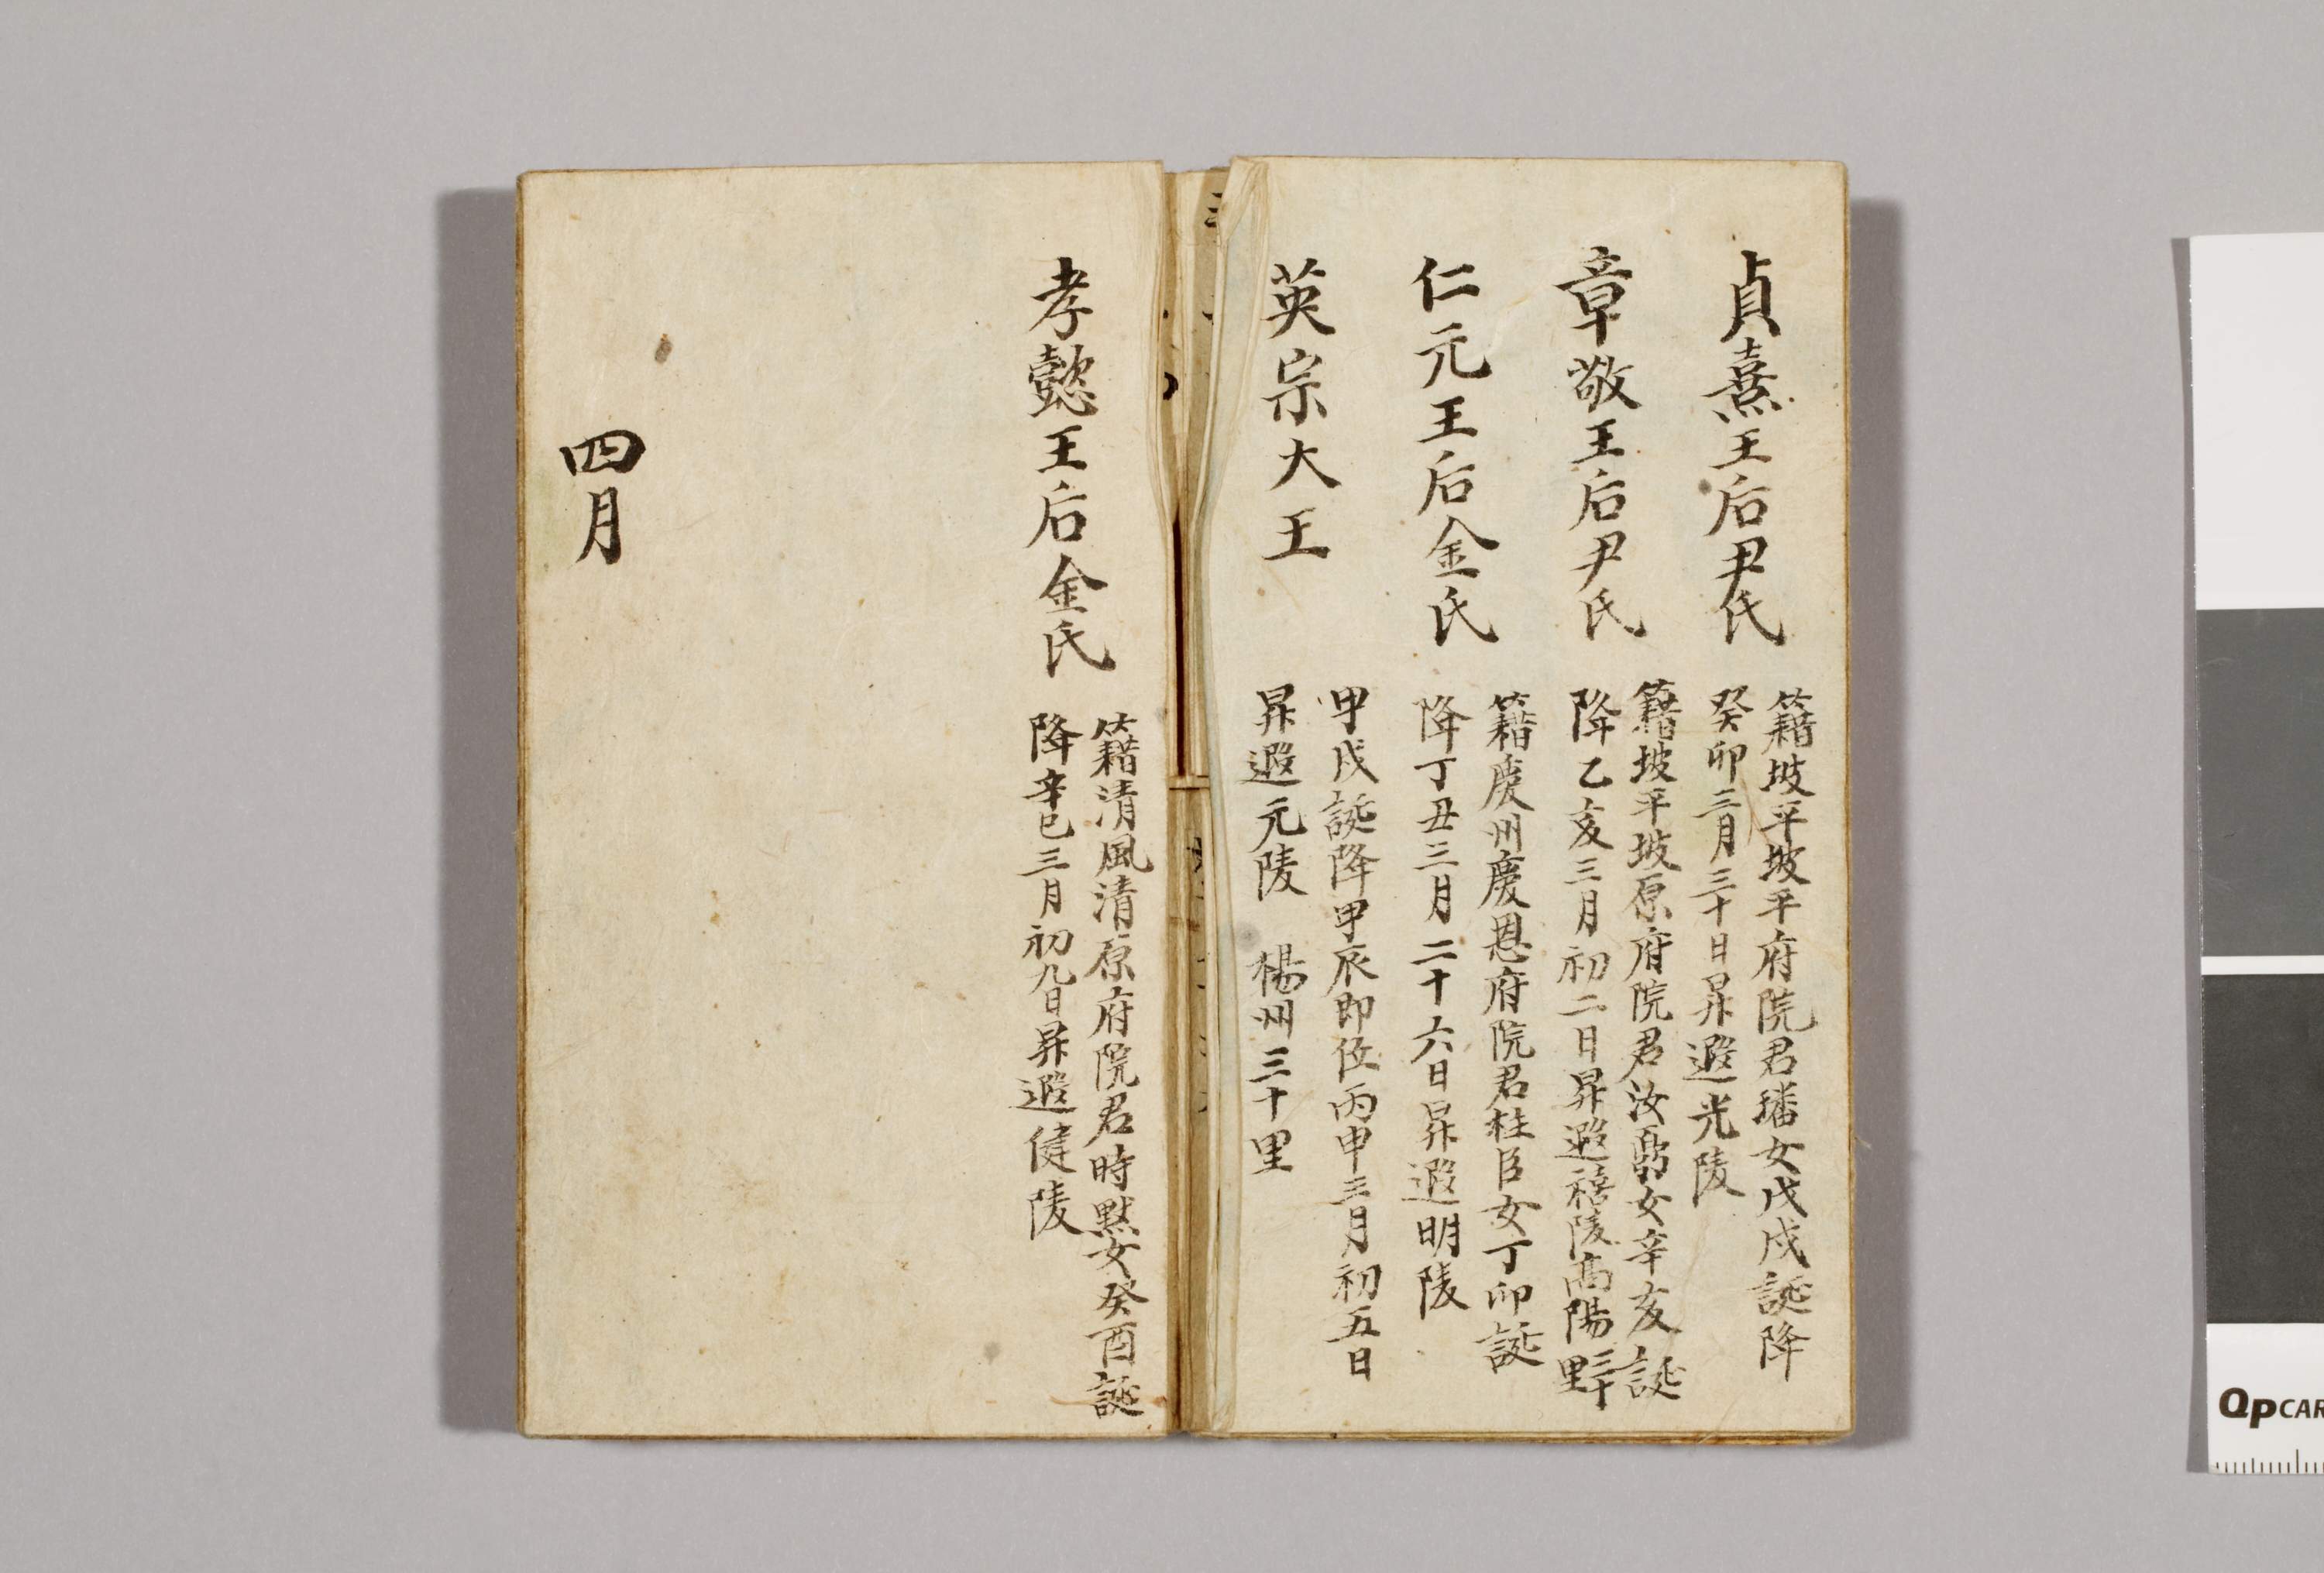 貞熹王后尹氏
籍坡平坡平府院君璠女戊戌誕降
癸卯三月三十日昇遐光陵
章敬王后尹氏
籍坡平坡原府院君汝弼女辛亥誕
降乙亥三月初二日昇遐禧陵高陽三十里
仁元王后金氏
籍慶州慶恩府院君柱臣女丁卯誕
降丁丑三月二十六日昇遐明陵
英宗大王
甲戌誕降甲辰即位丙申三月初五日
昇遐元陵 楊州三十里
孝懿王后金氏
籍清風清原府院君時默女癸酉誕
降辛巳三月初九日昇遐健陵
四月
QpCAR